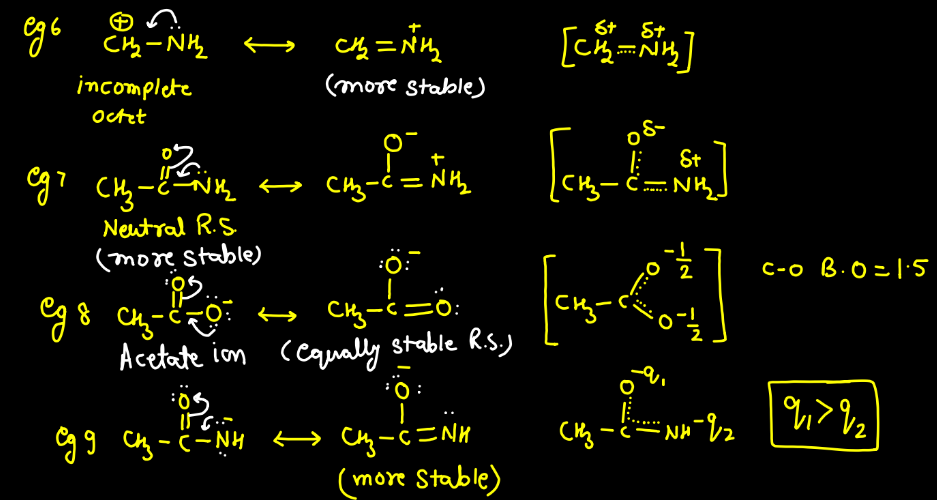 eg 6 ⊕CH₂ – N̈H₂ ⟷ CH₂ = N⁺H₂ [CH₂^δ+ ═ NH₂^δ+]
incomplete (more stable)
octet
eg 7 CH₃ – C(=O) – N̈H₂ ⟷ CH₃ – C(O⁻) = N⁺H₂ [CH₃ – C(O^δ-) ═ NH₂^δ+]
Neutral R.S.
(more stable)
eg 8 CH₃ – C(=O) – O⁻ ⟷ CH₃ – C(O⁻) = O [CH₃ – C(O^-1/2)(O^-1/2)] C-O B.O = 1.5
Acetate ion (equally stable R.S.)
eg 9 CH₃ – C(=O) – N̈⁻H ⟷ CH₃ – C(O⁻) = N̈H CH₃ – C(O^-q₁) ═ NH^-q₂ q₁ > q₂
(more stable)